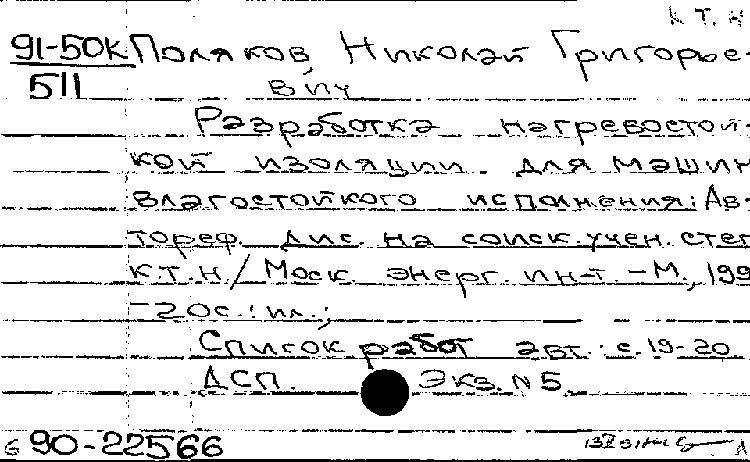 к т. н
91-50К Поляков, Николай Григорье-
511 вич
Разработка нагревостой-
кой изоляции для машин
влагостойкого исполнения: Ав-
тореф. дис. на соиск. учен. степ
к.т.н./ Моск. энерг. ин-т. - М., 199
- 20 с.: ил.;
Список работ авт.: с. 19-20
ДСП. Экз. N 5
б 90-22566